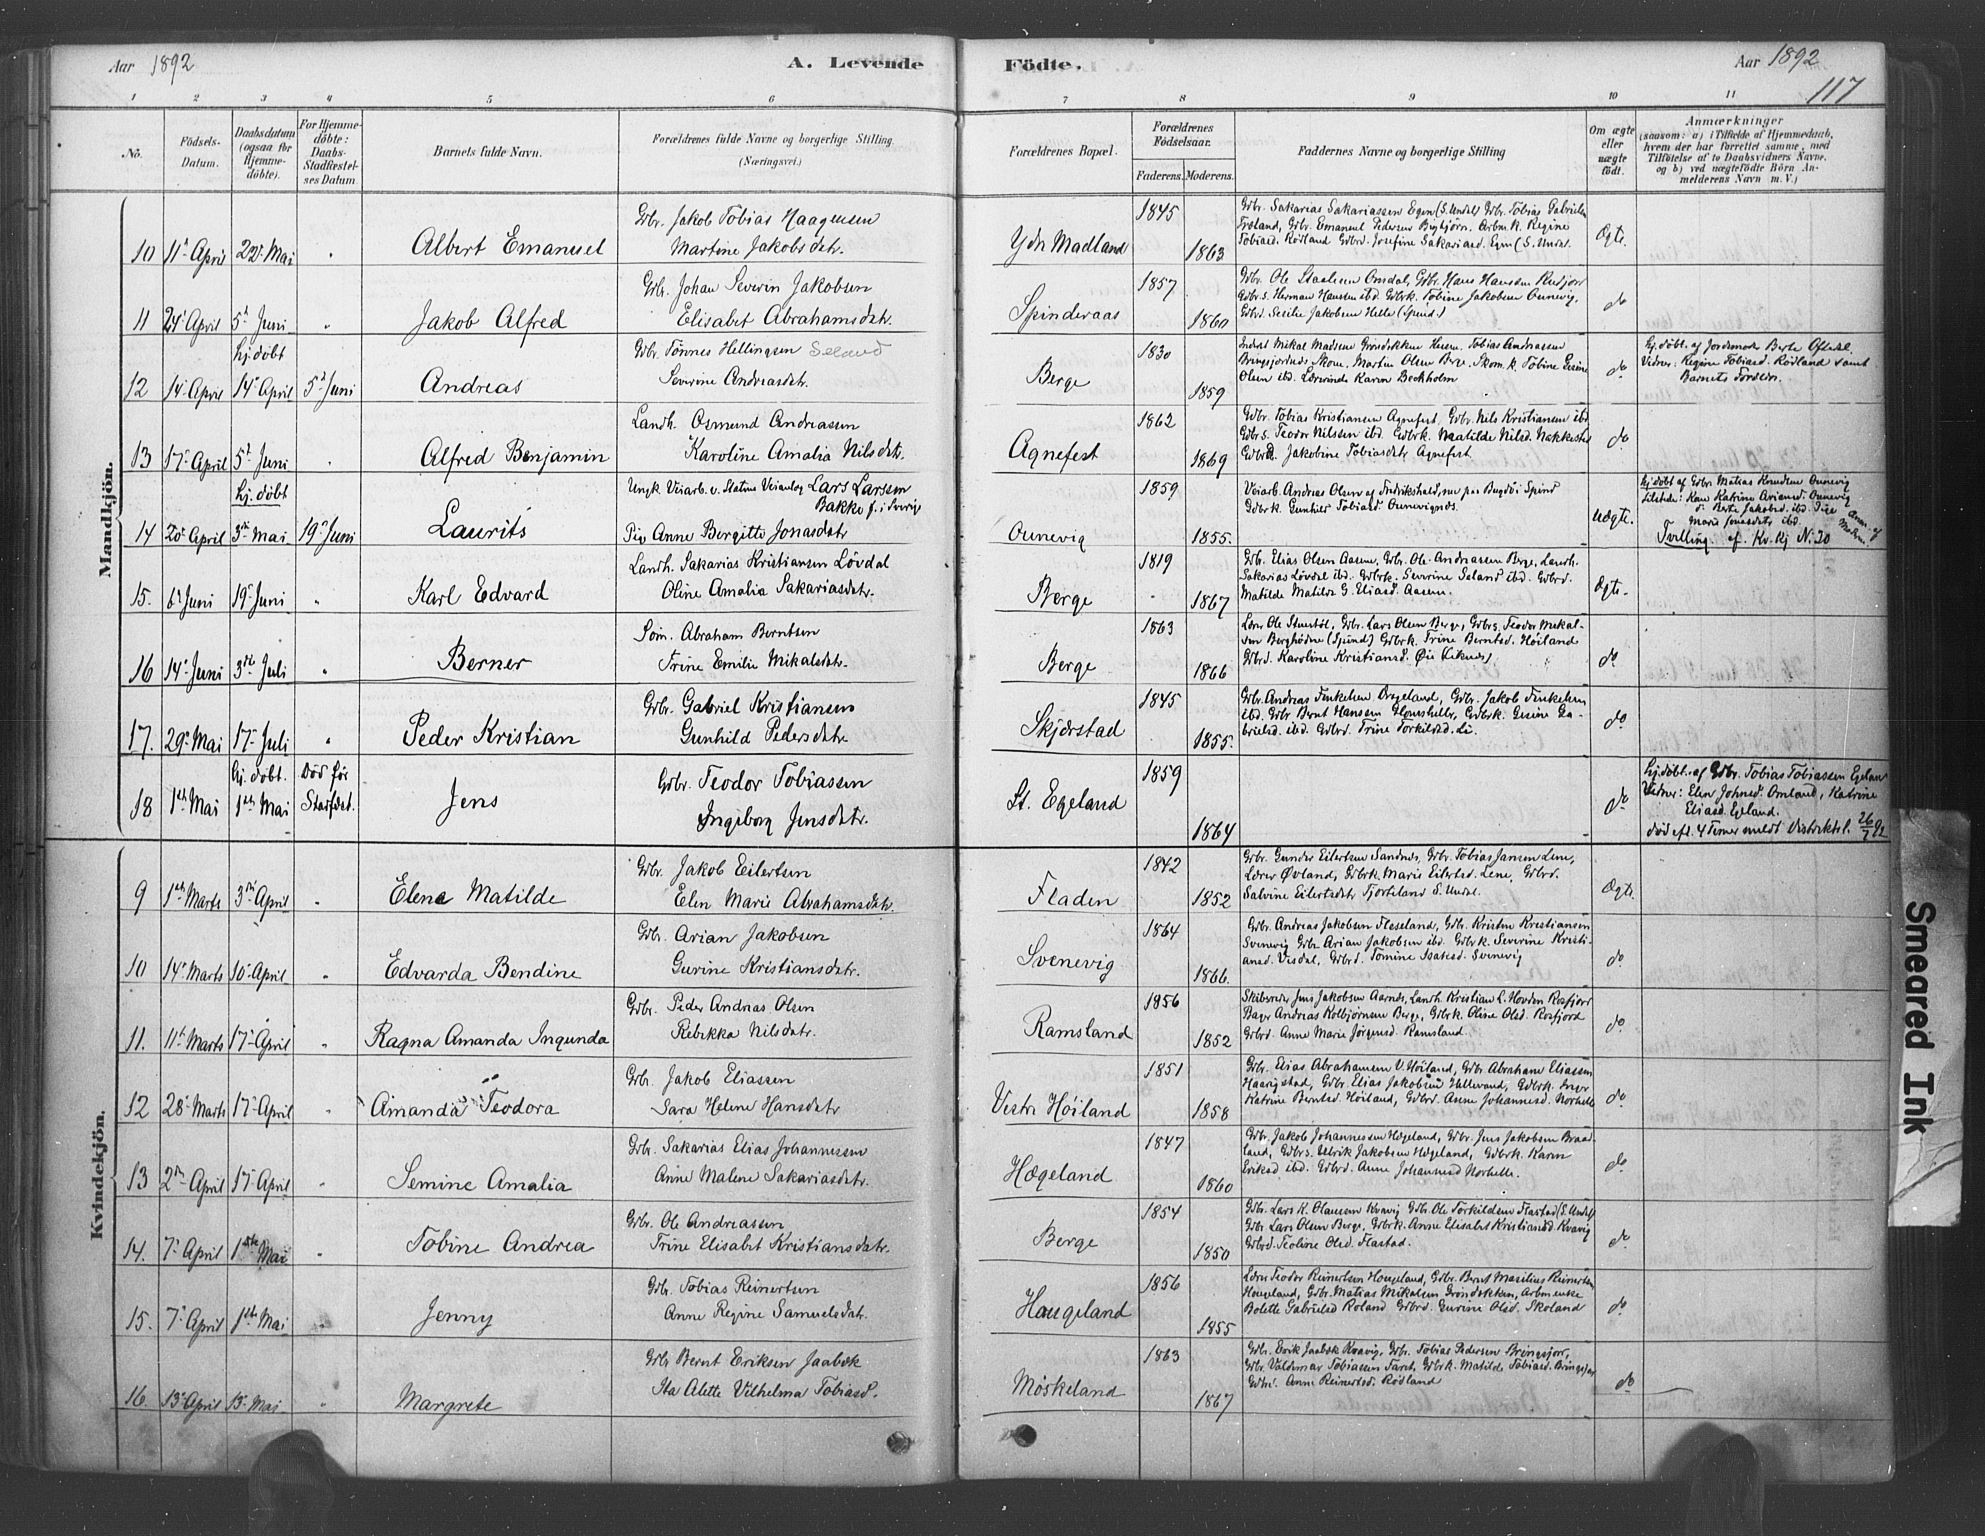 Aar 1892
A. Levende
Födte.
Aar 1892
117
1 2 3 4 5 6 7 8 9 10 11
No.
Födsels-Datum.
Daabsdatum (ogsaa for Hjemme-döbte).
For Hjemme-döbte: Daabs-Stadfæstel-ses Datum
Barnets fulde Navn.
Forældrenes fulde Navne og borgerlige Stilling (Næringsvei.)
Forældrenes Bopæl.
Forældrenes Födselsaar.
Faderens. Moderens.
Faddernes Navne og borgerlige Stilling
Om ægte eller uægte födt.
Anmærkninger
(saasom: a) i Tilfælde af Hjemmedaab,
hvem der har forrettet samme, med
Tilföielse af to Daabsvidners Navne.
og b) ved uægtefödte Börn An-
melderens Navn m. V.)
Mandkjön.
10 11te April 22de Mai " Albert Emanuel
Gbr. Jakob Tobias Haagensen
Martine Jakobsdatr.
Ydr. Madland 1845 1863
Gbr. Sakarias Sakariassen Egen (S. Undal) Gbr. Tobias Gabrielsen
Tobiasd. Rödland Gbrd. Josefine Sakariasd. Egen (S. Undal.
Ægte.
11 24 April 5te Juni " Jakob Alfred
Gbr. Johan Severin Jakobsen
Elisabet Abrahamsdatr.
Spinderaas 1857 1860
Gbr. Ole Staalesen Omdal, Gbr. Hans Hansen
Gbrs. Herman Hansen ibd. Gbrk. Tobine Jakobsen Ounevig,
Gbrd. Sesilie Jakobsen Helle (Spind.)
do
12 14 April hj. döbt 14 April 5te Juni Andreas
Gbr. Tönnes Hellingsen Seland
Severine Andreasdatr.
Berge 1830 1859
Olsen ibd. Lærerinde Karen Beckholm
do
hj. döbt. af Jordemoder Berte Oftedal
Vidner: Regine Tobiasd. Rödland samt
Barnets Forældre.
13 17 April 5te Juni . Alfred Benjamin
Landh. Osmund Andreassen
Karoline Amalia Nilsdatr.
Agnefest 1862 1869
Gbr. Tobias Kristiansen Agnefest, Gbr. Nils Kristiansen ibd
Gbrs. Teodor Nilssen ibd. Gbrk. Matilde Nilsd.
Gbrd. Jakobine Tobiasdatr. Agnefest.
do
14 20 April hj. döbt 3die Mai 19de Juni Laurits
Ungk. Veiarb. v. Statens Veianlæg Lars Larssen
Bakke f. i Sverige
Pig. Anne Bergitte Jonasdatr.
Ounevig 1859 1855.
Veiarb. Andreas Olsen af Fredrikshald, nu paa Bugdöi Spind
Gbrk. Gunhild Tobiasd. Ounevignes.
Uægte.
hj. döbt af Gbr. Matias Knudsen Ounevig
Berte Jakobsd. ibd.
Marie Jonasdatr. ibd.
Tvilling af Kv. kj N. 20
15. 6 Juni 19 Juni " Karl Edvard
Landh. Sakarias Kristiansen Lövdal
Oline Amalia Sakariasdatr.
Berge 1819 1867
Gbr. Elias Olsen Aasen, Gbr. Ole Andreasen Berge, Landh.
Sakarias Lövdal ibd. Gbrk. Severine Seland ibd. Gbrd.
Matilde Matilde G. Eliasd. Aasen.
Ægte.
16 14 Juni 3die Juli " Berner
Söm. Abraham Berntsen
Trine Emilie Mikalsdatr.
Berge 1863 1866
Lærer Ole Gbr. Lars Olsen Berge, Gbrs. Teodor Mikal-
sen (Spind) Gbrk. Trine Berntsd. Höiland
Gbrd. Karoline Kristiansd. Öie
do
17. 29 Mai 17 Juli " Peder Kristian
Gbr. Gabriel Kristiansen
Gunhild Pedersdatr
Skjærstad 1845 1855.
Gbr. Andreas Tinkelsen Gbr. Jakob Tinkelsen
ibd. Gbr. Bernt Hansen Gbrk. Gesine Ga-
brielsd. ibd. Gbrd. Trine Torkildsd. Li.
do
18 1ste Mai hj. döbt. 1ste Mai Död för Stadfæst. Jens
Gbr. Teodor Tobiassen
Ingeborg Jensdatr.
St. Egeland 1859 1864
do
hj. döbt. af Gbr. Tobias Tobiassen Egeland
Vidner: Elen Johnsd. Omland, Katrine
Eliasd. Egeland.
död eft. 4 Timer meldt Distriktsl. 26/7 92
Kvindekjön.
9 1ste Marts 3die April " Elene Matilde
Gbr. Jakob Eilertsen
Elen Marie Abrahamsdatr.
Fladen 1842 1852
Gbr. Gunder Eilertsen Sandnes, Gbr. Tobias Jansen Lene,
Lærer Øvland, Gbrk. Marie Eilertsd. Lene, Gbrd.
Salvine Eilertsdatr Fjorteland S. Undal.
Ægte.
10 14 Marts 10 April " Edvarda Bendine
Gbr. Arian Jakobsen
Gurine Kristiansdatr.
Svenevig 1864 1866.
Gbr. Andreas Jakobsen Gbr. Kristen Kristiansen
Svenevig Gbr. Arian Jakobsen ibd. Gbrk. Severine Kristi-
ansd. Visdal, Gbrd. Tomine Isaksd. Svenevig
do
11. 11te Marts 17 April " Ragna Amanda Ingunda
Gbr. Peder Andreas Olsen
Rebekka Nilsdatr.
Ramsland 1856 1852
Skibsreder Jens Jakobsen Aarnes, Landh. Kristian L. Hovden Rosfjord
Bager Andreas Kolbjörnsen Berge, Gbrk. Oline Olsd. Rosfjord
Gbrd. Anne Marie Jörgensd. Ramsland.
do
12 28 Marts 17 April " Amanda Teodora
Gbr. Jakob Eliassen
Sara Helene Hansdatr
Vestr. Höiland 1851 1858
Gbr. Elias Abrahamsen V. Höiland, Gbr. Abraham Eliassen
Haarigstad, Gbr. Elias Jakobsen Hellevand, Gbrk. Inger
Katrine Berntsd. Höiland, Gbrd. Anne Johannesd. Norhelle
do
13 2den April 17 April " Semine Amalia
Gbr. Sakarias Elias Johannessen
Anne Malene Sakariasdatr.
Hægeland 1847 1860
Gbr. Jakob Johannessen Hægeland, Gbr. Jens Jakobsen Braad-
land, Gbrs. Ulrik Jakobsen Hægeland, Gbrk. Karen
Eriksd ibd. Gbrd. Anne Johannesd Norhelle.
do
14. 7 April 1ste Mai " Tobine Andrea
Gbr. Ole Andreassen
Trine Elisabet Kristiansdatr.
Berge 1854 1850
Gbr. Lars K. Olaussen Kvavig Gbr. Ole Torkildsen Flastad (S. Undal)
Gbr. Lars Olsen Berge, Gbrk. Anne Elisabet Kristiansd Kvavig
Gbrd. Teoline Olsd. Flastad.
do
15. 7 April 1ste Mai " Jenny
Gbr. Tobias Reinertsen
Anne Regine Samuelsdatr.
Haugeland 1856 1855
Lærer Teodor Reinertsen Haugeland, Gbr. Bernt Reinertsen
Haugeland, Gbr. Matias Mikalsen Gröndokken, Arbmenke
Bolette Gabrielsd Roland Gbrd. Gurine Olsd. Skoland
do
16. 13 April 15 Mai " Margrete
Gbr. Bernt Eriksen Jaabæk
Ita Alette Vilhelma Tobiasd.
Möskeland 1863 1867
Gbr. Eerik Jaabæk Kvavig, Gbr. Tobias Pedersen Bringsjor,
Gbr. Valdemar Tobiassen Gbrk. Matilde Tobiasd. Bringsjor
Gbrd. Anne Reinertsd. Rödland
do
Smeared Ink